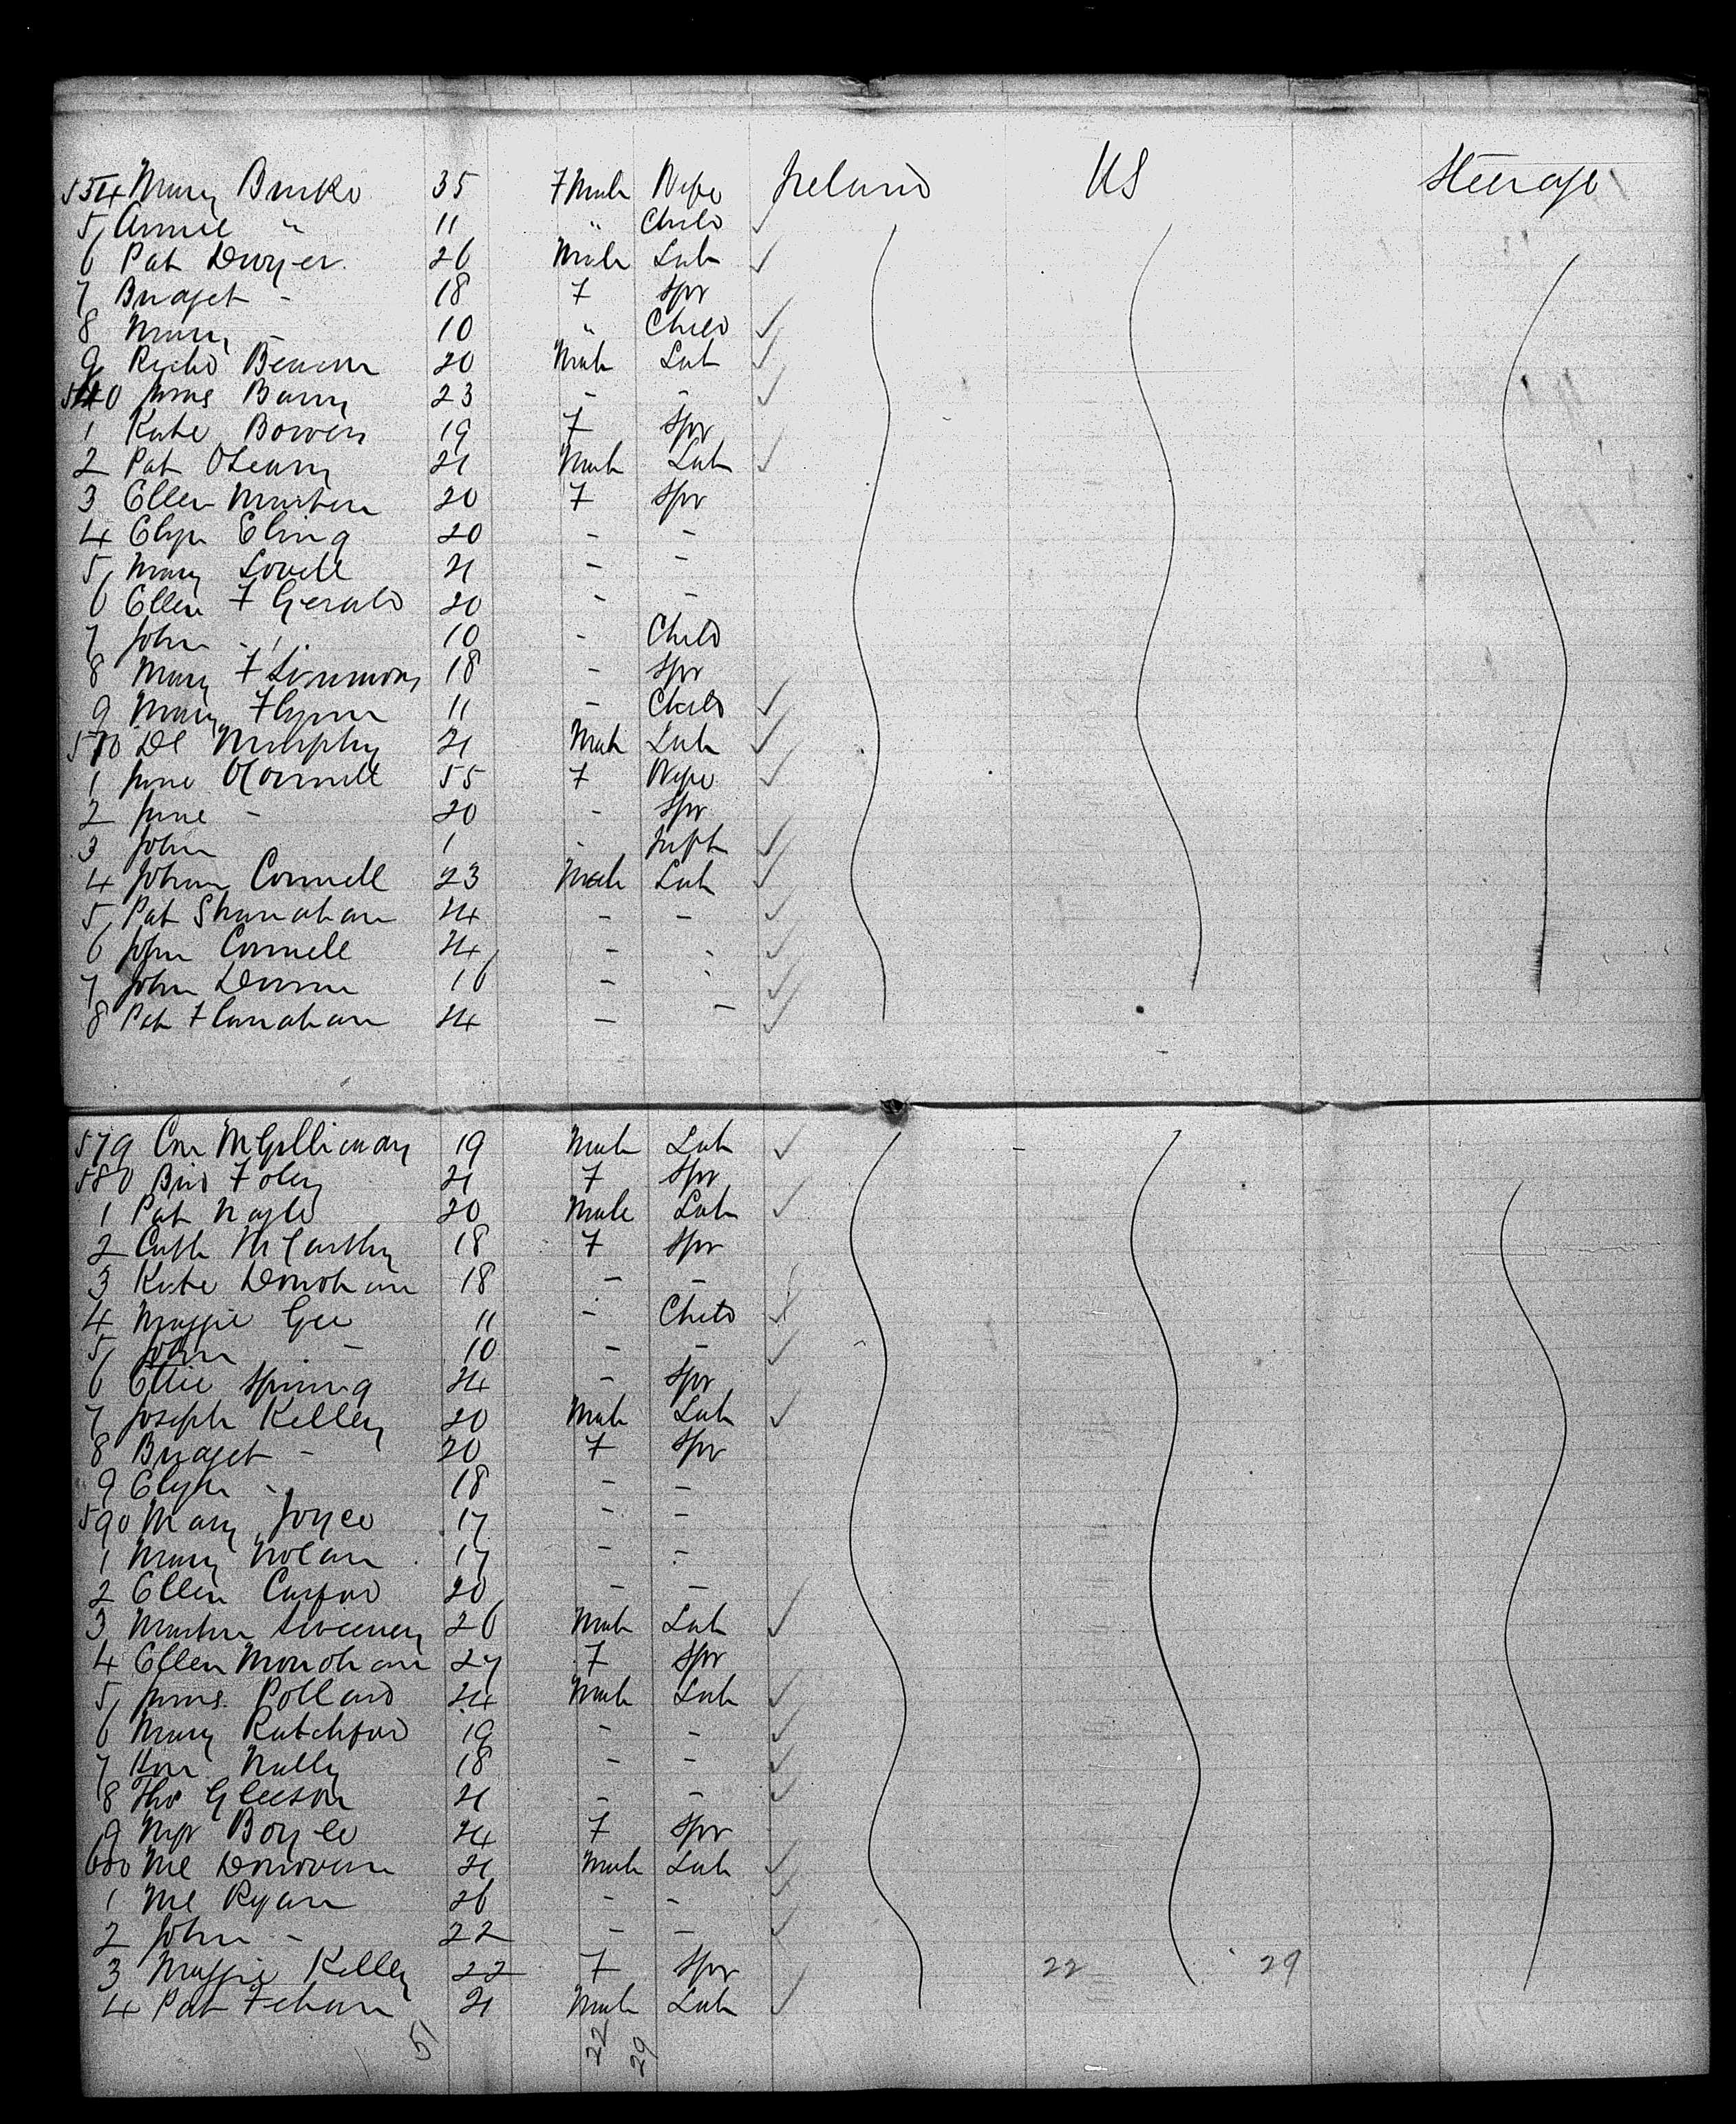 554 Mary Burke 35 Female Wife Ireland US Steerage
5 Annie " 11 " Child
6 Pat Dwyer 26 Male Lab
7 Bridget - 18 F Spr
8 Mary - 10 " Child
9 Richd 20 Male Lab
560 James Barry 23 - -
1 Kate Bowen 19 F Spr
2 Pat OLeary 21 Male Lab
3 Ellen Martin 20 F Spr
4 Eliza 20 - -
5 Mary Lovell 21 - -
6 Ellen F Gerald 20 - -
7 John - 10 - Child
8 Mary F Simmons 18 - Spr
9 Mary Flynn 11 - Child
570 Murphy 21 Male Lab
1 Jane OConnell 55 F Wife
2 Jane - 20 - Spr
3 John 1 - Inft
4 Connell 23 Male Lab
5 Pat Shanahan 24 - -
6 John Connell 24 - -
7 John 16 -
8 Pat Flanahan 24 - -
579 Con McGillicuddy 19 Male Lab
580 Brid Foley 21 F Spr
1 Pat Nagle 20 Male Lab
2 Cath McCarthy 18 F Spr
3 Kate Donohan 18 - -
4 Maggie Gee 11 - Child
5 John - 10 - -
6 Ellie Spring 24 - Spr
7 Joseph Kelley 20 Male Lab
8 Bridget - 20 F Spr
9 Eliza - 18 - -
590 Mary Joyce 17 - -
1 Mary Nolan 17 - -
2 Ellen 20 - -
3 Martin Sweeney 26 Male Lab
4 Ellen Monohan 27 F Spr
5 James Pollard 24 Male Lab
6 Mary Ratchford 19 - -
7 Nally 18 - -
8 Tho Gleeson 21 - -
9 Boyle 24 F Spr
600 Ml Donovan 21 Male Lab
1 Ml Ryan 26 - -
2 John - 22 - -
3 Maggie Kelley 22 F Spr 22 29
4 Pat Fehan 21 Male Lab
51 22 29